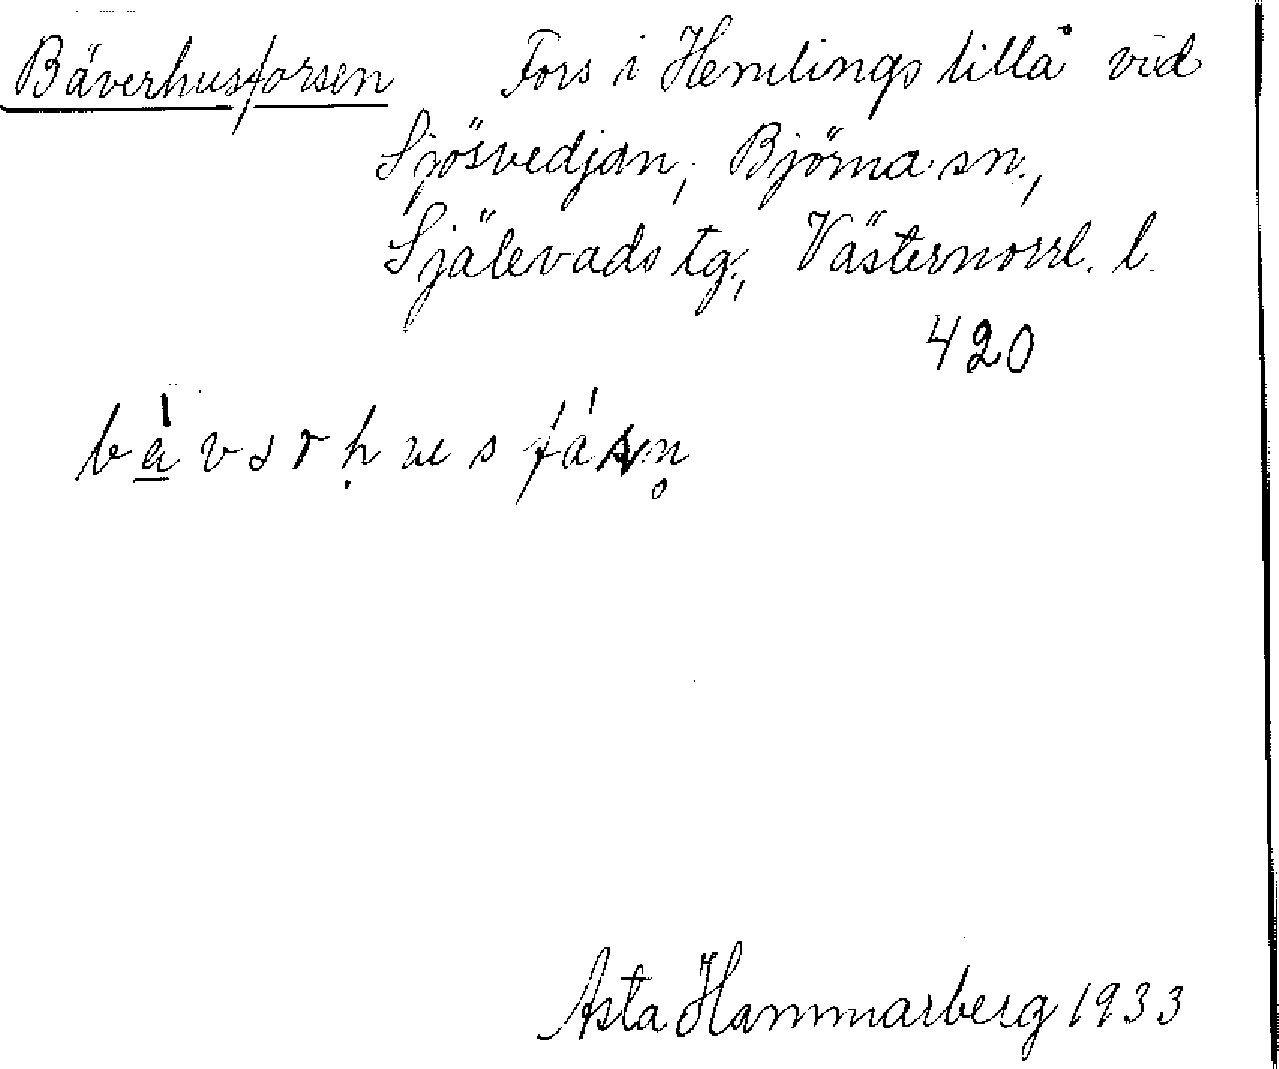 Bäverhusforsen Fors i Hemlings lillå vid
Sjösvedjan, Björna sn.,
Själevads tg., Västernorrl. l.
420
Asta Hammarberg 1933